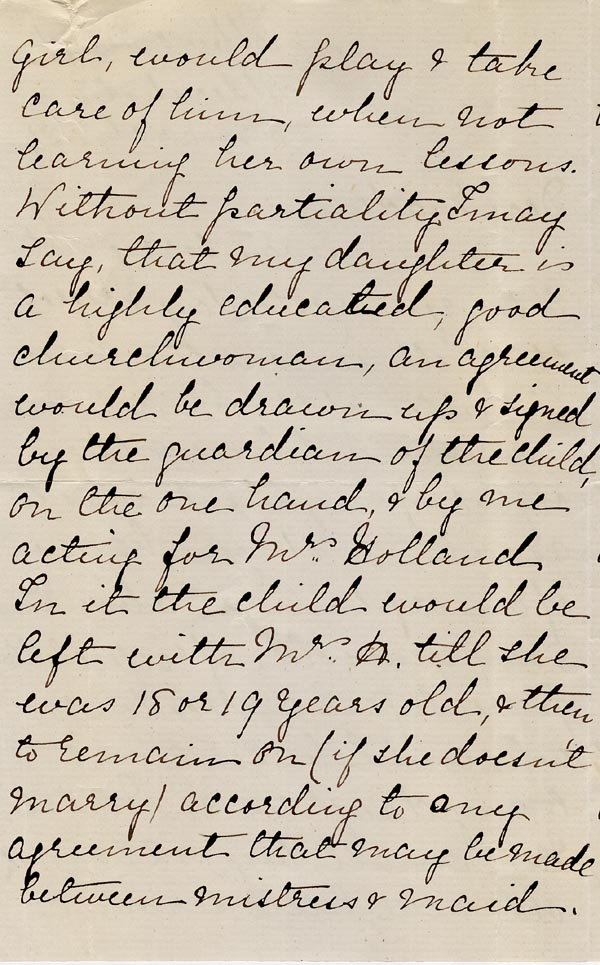 girl, would play & take
care of him, when not
learning her own lessons.
Without partiality I may
say, that my daughter is
a highly educated, good
churchwoman, an agreement
would be drawn up & signed
by the guardian of the child,
on the one hand, & by me
acting for Mrs. Holland
In it the child would be
left with Mrs. H. till she
was 18 or 19 years old, & then
to remain on (if she doesn't
marry) according to any
agreement that may be made
between mistress & maid.